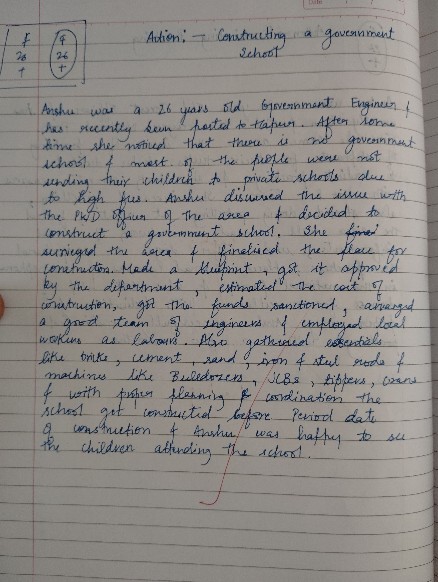 F
26
+
F
26
+
Action:- Constructing a government
School
Anshu was a 26 years old Government Engineer &
has recently been posted to Hapur. After some
time she noticed that there is no government
school & most of the people were not
sending their children to private schools due
to high fees. Anshu discussed the issue with
the PWD officer of the area & decided to
construct a government school. She
surveyed the area & finalised the place for
construction. Made a blueprint, got it approved
by the department, estimated the cost of
construction, got the funds sanctioned, arranged
a good team of engineers & employed local
workers as labours. Also gathered essentials
like bricks, cement, sand, iron & steel rods &
machines like Bulldozers, JCBs, tippers, crans
& with proper planning & cordination the
school got constructed before Period date
of construction & Anshu was happy to see
the children attending the school.